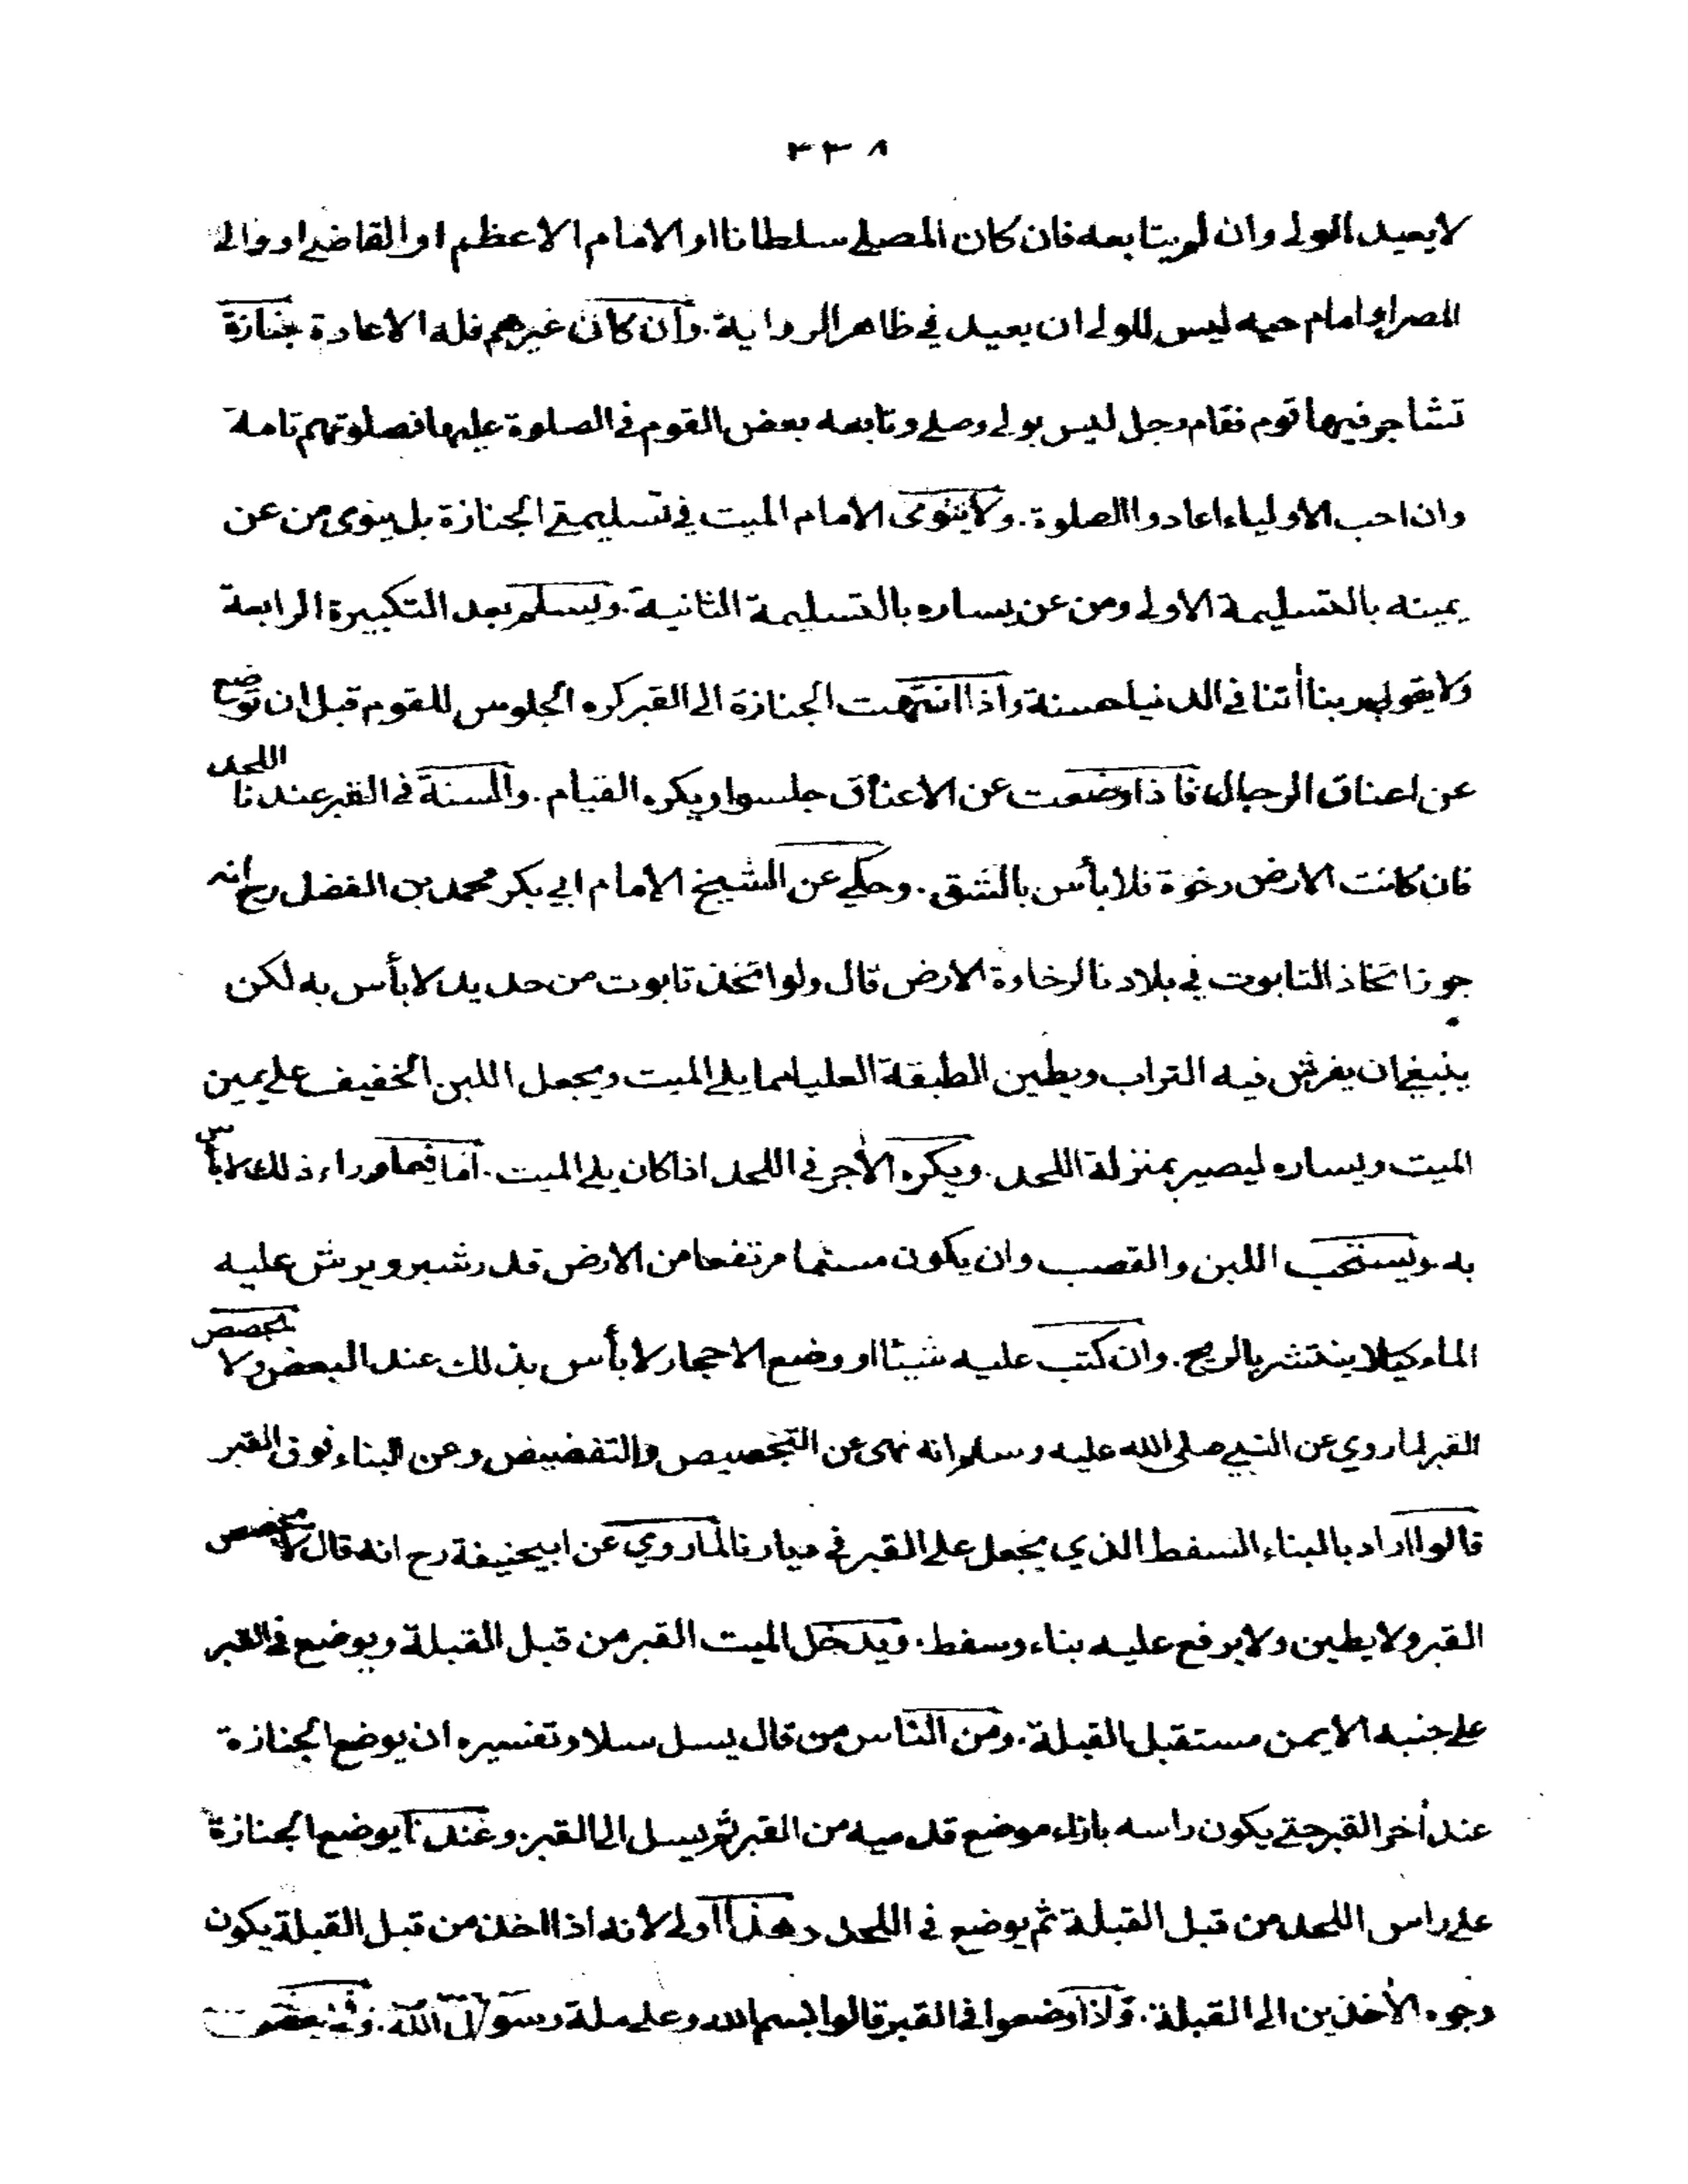 ٢٣٨
لا يعيد الولي وان لم يتابعه فان كان المصلي سلطانا او الامام الاعظم او القاضي او والي
المصر او امام حيه ليس للولي ان يعيد في ظاهر الرواية. وان كان غيرهم فله الاعادة جنازة
تشاجر فيها قوم فقام رجل ليس بولي وصلى وتابعه بعض القوم في الصلوة عليها فصلوتهم تامة
وان احب الاولياء اعادوا الصلوة. ولا ينوى الامام الميت في تسليمتي الجنازة بل ينوى من عن
يمينه بالتسليمة الاولى ومن عن يساره بالتسليمة الثانية. ويسلم بعد التكبيرة الرابعة
ولا يقول ربنا أتنا في الدنيا حسنة واذا انتهت الجنازة الى القبر كره الجلوس للقوم قبل ان توضع
عن اعناق الرجال فاذا وضعت عن الاعناق جلسوا ويكره القيام. والسنة في القبر عندنا اللحد
فان كانت الارض رخوة فلا بأس بالشق. وحكي عن الشيخ الامام ابي بكر محمد بن الفضل رح انه
جوز اتخاذ التابوت في بلادنا لرخاوة الارض قال ولو اتخذ تابوت من حديد لا بأس به لكن
ينبغي ان يفرش فيه التراب ويطين الطبقة العليا مما يلي الميت ويجعل اللبن الخفيف على يمين
الميت ويساره ليصير بمنزلة اللحد. ويكره الأجر في اللحد اذا كان يلي الميت. اما فيما وراء ذلك لا بأس
به. ويستحب اللبن والقصب وان يكون مسنما مرتفعا من الارض قدر شبر ويرش عليه
الماء كيلا ينتشر بالريح. وان كتب عليه شيئا او وضع الاحجار لا بأس بذلك عند البعض ولا يجصص
القبر لما روي عن النبي صلى الله عليه وسلم انه نهى عن التجصيص والتفضيض وعن البناء فوق القبر
قالوا اراد بالبناء السفط الذي يجعل على القبر في ديارنا لما روي عن ابيحنيفة رح انه قال لا يجصص
القبر ولا يطين ولا يرفع عليه بناء وسفط. ويدخل الميت القبر من قبل القبلة ويوضع في القبر
على جنبه الايمن مستقبل القبلة. ومن الناس من قال يسل سلا وتفسيره ان يوضع الجنازة
عند أخر القبر حتى يكون راسه بازاء موضع قدميه من القبر ثم يسل الى القبر. وعندنا يوضع الجنازة
على راس اللحد من قبل القبلة ثم يوضع في اللحد وهذا اولى لانه اذا اخذ من قبل القبلة يكون
وجوه الأخذين الى القبلة. واذا وضعوا في القبر قالوا بسم الله وعلى ملة رسول الله.